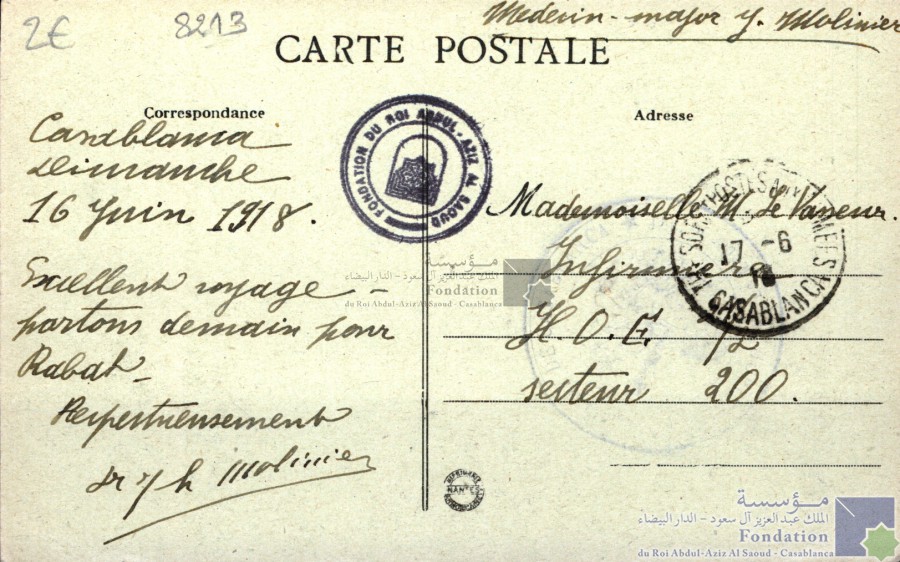 2€ 8213
Medecin-major J. Molinier
CARTE POSTALE
Correspondance
Casablanca
Dimanche
16 Juin 1918.
Excellent voyage –
partons demain pour
Rabat –
Respectueusement
Dr J h Molinier
FONDATION DU ROI ABDUL-AZIZ AL SAOUD
Adresse
Mademoiselle M. Le Vasseur.
Infirmière
H.O.E. 1/2
secteur 200.
TRESOR ET POSTES AUX ARMEES
17 -6
CASABLANCA
مؤسسة
الملك عبد العزيز آل سعود - الدار البيضاء
Fondation
du Roi Abdul-Aziz Al Saoud - Casablanca
NANTES
مؤسسة
الملك عبد العزيز آل سعود - الدار البيضاء
Fondation
du Roi Abdul-Aziz Al Saoud - Casablanca